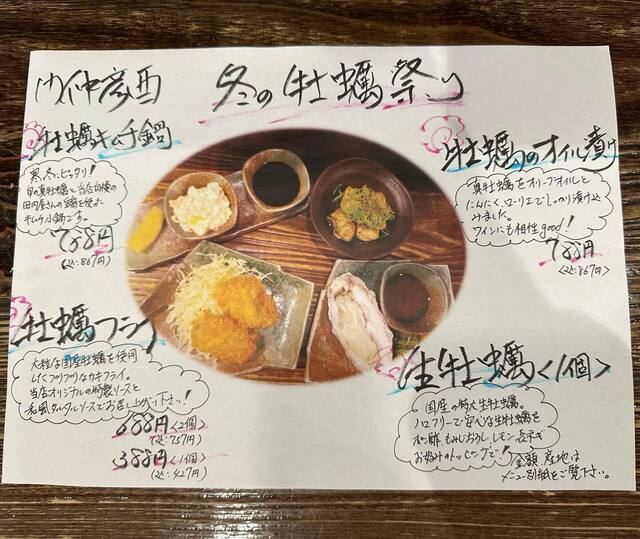 冬の牡蠣祭り
牡蠣キムチ鍋
寒い冬にピッタリ!
旬の真牡蠣と当店自慢の
田内屋さんの
キムチ小鍋です。
788円
(込:867円)
牡蠣のオイル漬け
真牡蠣をオリーブオイルと
にんにく、ローリエでしっかり漬け込
みました。
ワインにも相性good!
788円
(込:867円)
牡蠣フライ
大粒な国産牡蠣を使用
したぷりぷりなカキフライ。
当店オリジナルの特製ソースと
和風タルタルソースでお召し上がり下さい!
688円<2個>
(込:757円)
388円<1個>
(込:427円)
生牡蠣<1個>
国産の特大生牡蠣。
ノロフリーで安心な生牡蠣を
ポン酢、もみじおろし、レモン、
お好みのトッピングで!
金額、産地は
メニュー別紙をご覧下さい。